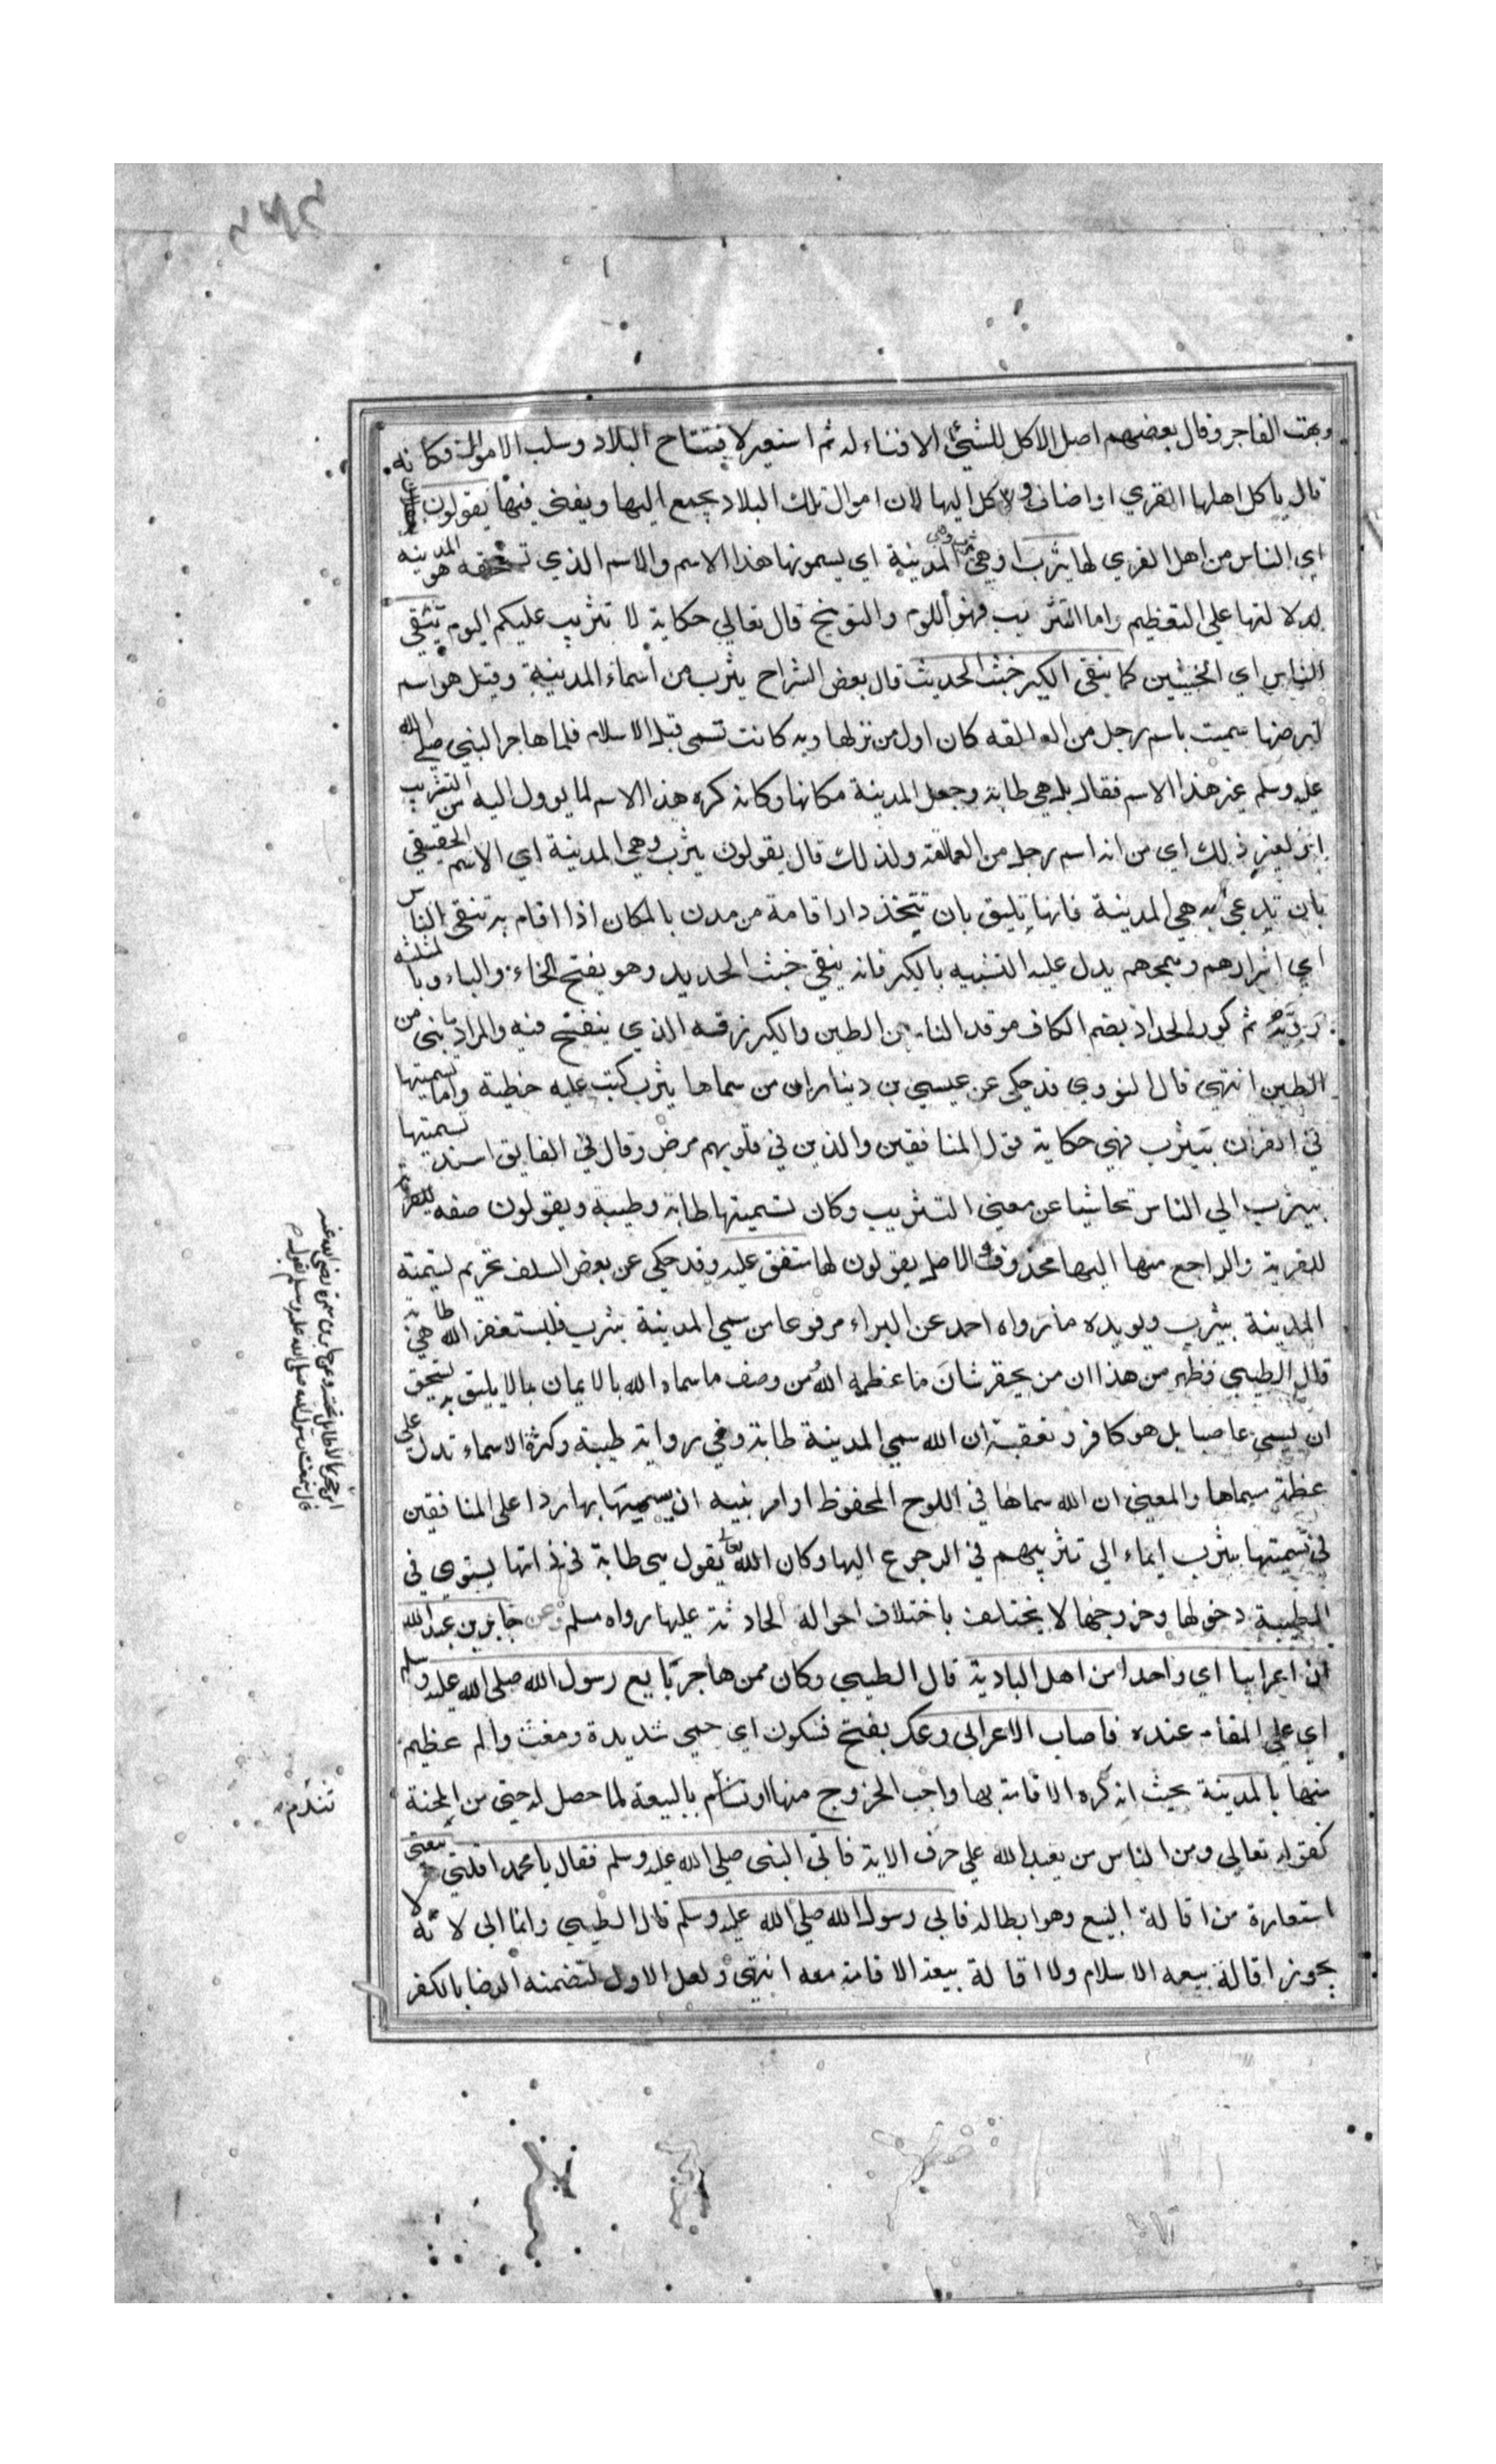 وبهت الفاجر وقال بعضهم اصل الاكل للشيئ الافناء له ثم استعير لافتتاح البلاد وسلب الاموال فكانه
قال ياكل اهلها القري او اضاف الاكل اليها لان اموال تلك البلاد يجمع اليها ويفنى فيها يقولون
اي الناس من اهل القري لها يثرب وهي المدينة اي يسمونها هذا الاسم والاسم الذي تستحقه هو المدينة
لدلالتها على التعظيم واما التثريب فهو اللوم والتوبيخ قال تعالي حكاية لا تثريب عليكم اليوم تنقي
الناس اي الخبيثين كما ينقى الكير خبث الحديث قال بعض الشراح يثرب من اسماء المدينة وقيل هو اسم
لبرضها سميت باسم رجل من العمالقه كان اول من نزلها وبه كانت تسمى قبل الاسلام فلما هاجر النبي صلى الله
عليه وسلم غير هذا الاسم فقال بل هي طابة وجعل المدينة مكانها وكانه كره هذا الاسم لما يوول اليه من التثريب
لغير ذلك اي من انه اسم رجل من العمالقة ولذلك قال يقولون يثرب وهي المدينة اي الاسم الحقيقي
بان تدعى به هي المدينة فانها تليق بان تتخذ دار اقامة من مدن بالمكان اذا اقام به تنقى الناس
اي اشرارهم وهمجهم يدل عليه التشبيه بالكير فانه ينقي خبث الحديد وهو بفتح الخاء والباء وبالمثلثه
رديه ثم كور الحداد بضم الكاف موقد النار من الطين والكير زقه الذي ينفخ فيه والمراد ما بنى من
الطين انتهى قال النووي قد حكى عن عيسى بن دينار ان من سماها يثرب كتب عليه خطية واما تسميتها
في القران بيثرب فهي حكاية قول المنافقين والذين في قلوبهم مرض وقال في الفايق اسند تسميتها
بيثرب الي الناس تحاشيا عن معنى التثريب وكان تسميتها طابة وطيبة ويقولون صفه للقرية
للقرية والراجع منها اليها محذوف الاصل يقولون لها متفق عليه وقد حكى عن بعض السلف تحريم تسمية
المدينة بيثرب ويويده ما رواه احمد عن البراء مرفوعا من سمى المدينة يثرب فليستغفر الله هي طابة
قال الطيبي فظهر من هذا ان من يحقر شان ما عظمه الله من وصف ما سماه الله بالايمان بما لا يليق به يستحق
ان يسمى عاصيا بل هو كافر وتعقبه ان الله سمى المدينة طابة وفي رواية طيبة وكثرة الاسماء تدل على
عظم مسماها والمعنى ان الله سماها في اللوح المحفوظ او امر نبيه ان يسميها بها ردا على المنافقين
في تسميتها بيثرب ايماء الي تثريبهم في الرجوع اليها وكان الله تعالى يقول هي طابة في ذاتها يستوي في
الطيبة دخولها وخروجها لا يختلف باختلاف احواله الحادثة عليها رواه مسلم وعن جابر بن عبد الله
ان اعرابيا اي واحدا من اهل البادية قال الطيبي وكان ممن هاجر بايع رسول الله صلى الله عليه وسلم
اي على المقام عنده فاصاب الاعرابي وعك بفتح فسكون اي حمي شديدة ومغث والم عظيم
منها بالمدينة بحيث انه كره الاقامة بها واحب الخروج منها او تشأم بالبيعة لما حصل له حتى من المحنة
كقوله تعالي ومن الناس من يعبد الله على حرف الاية فاتى النبي صلى الله عليه وسلم فقال يا محمد اقلني بيعتى
استعارة من اقالة البيع وهو ابطاله فابى رسول الله صلى الله عليه وسلم قال الطيبي وانما ابى لانه لا
يجوز اقالة بيعه الاسلام ولا اقالة بيعة الاقامة معه انتهى ولعل الاول لتضمنه الرضا بالكفر
وعن جابر بن سمرة رضى الله عنه
قال سمعت رسول الله صلى الله عليه وسلم يقول
تندم